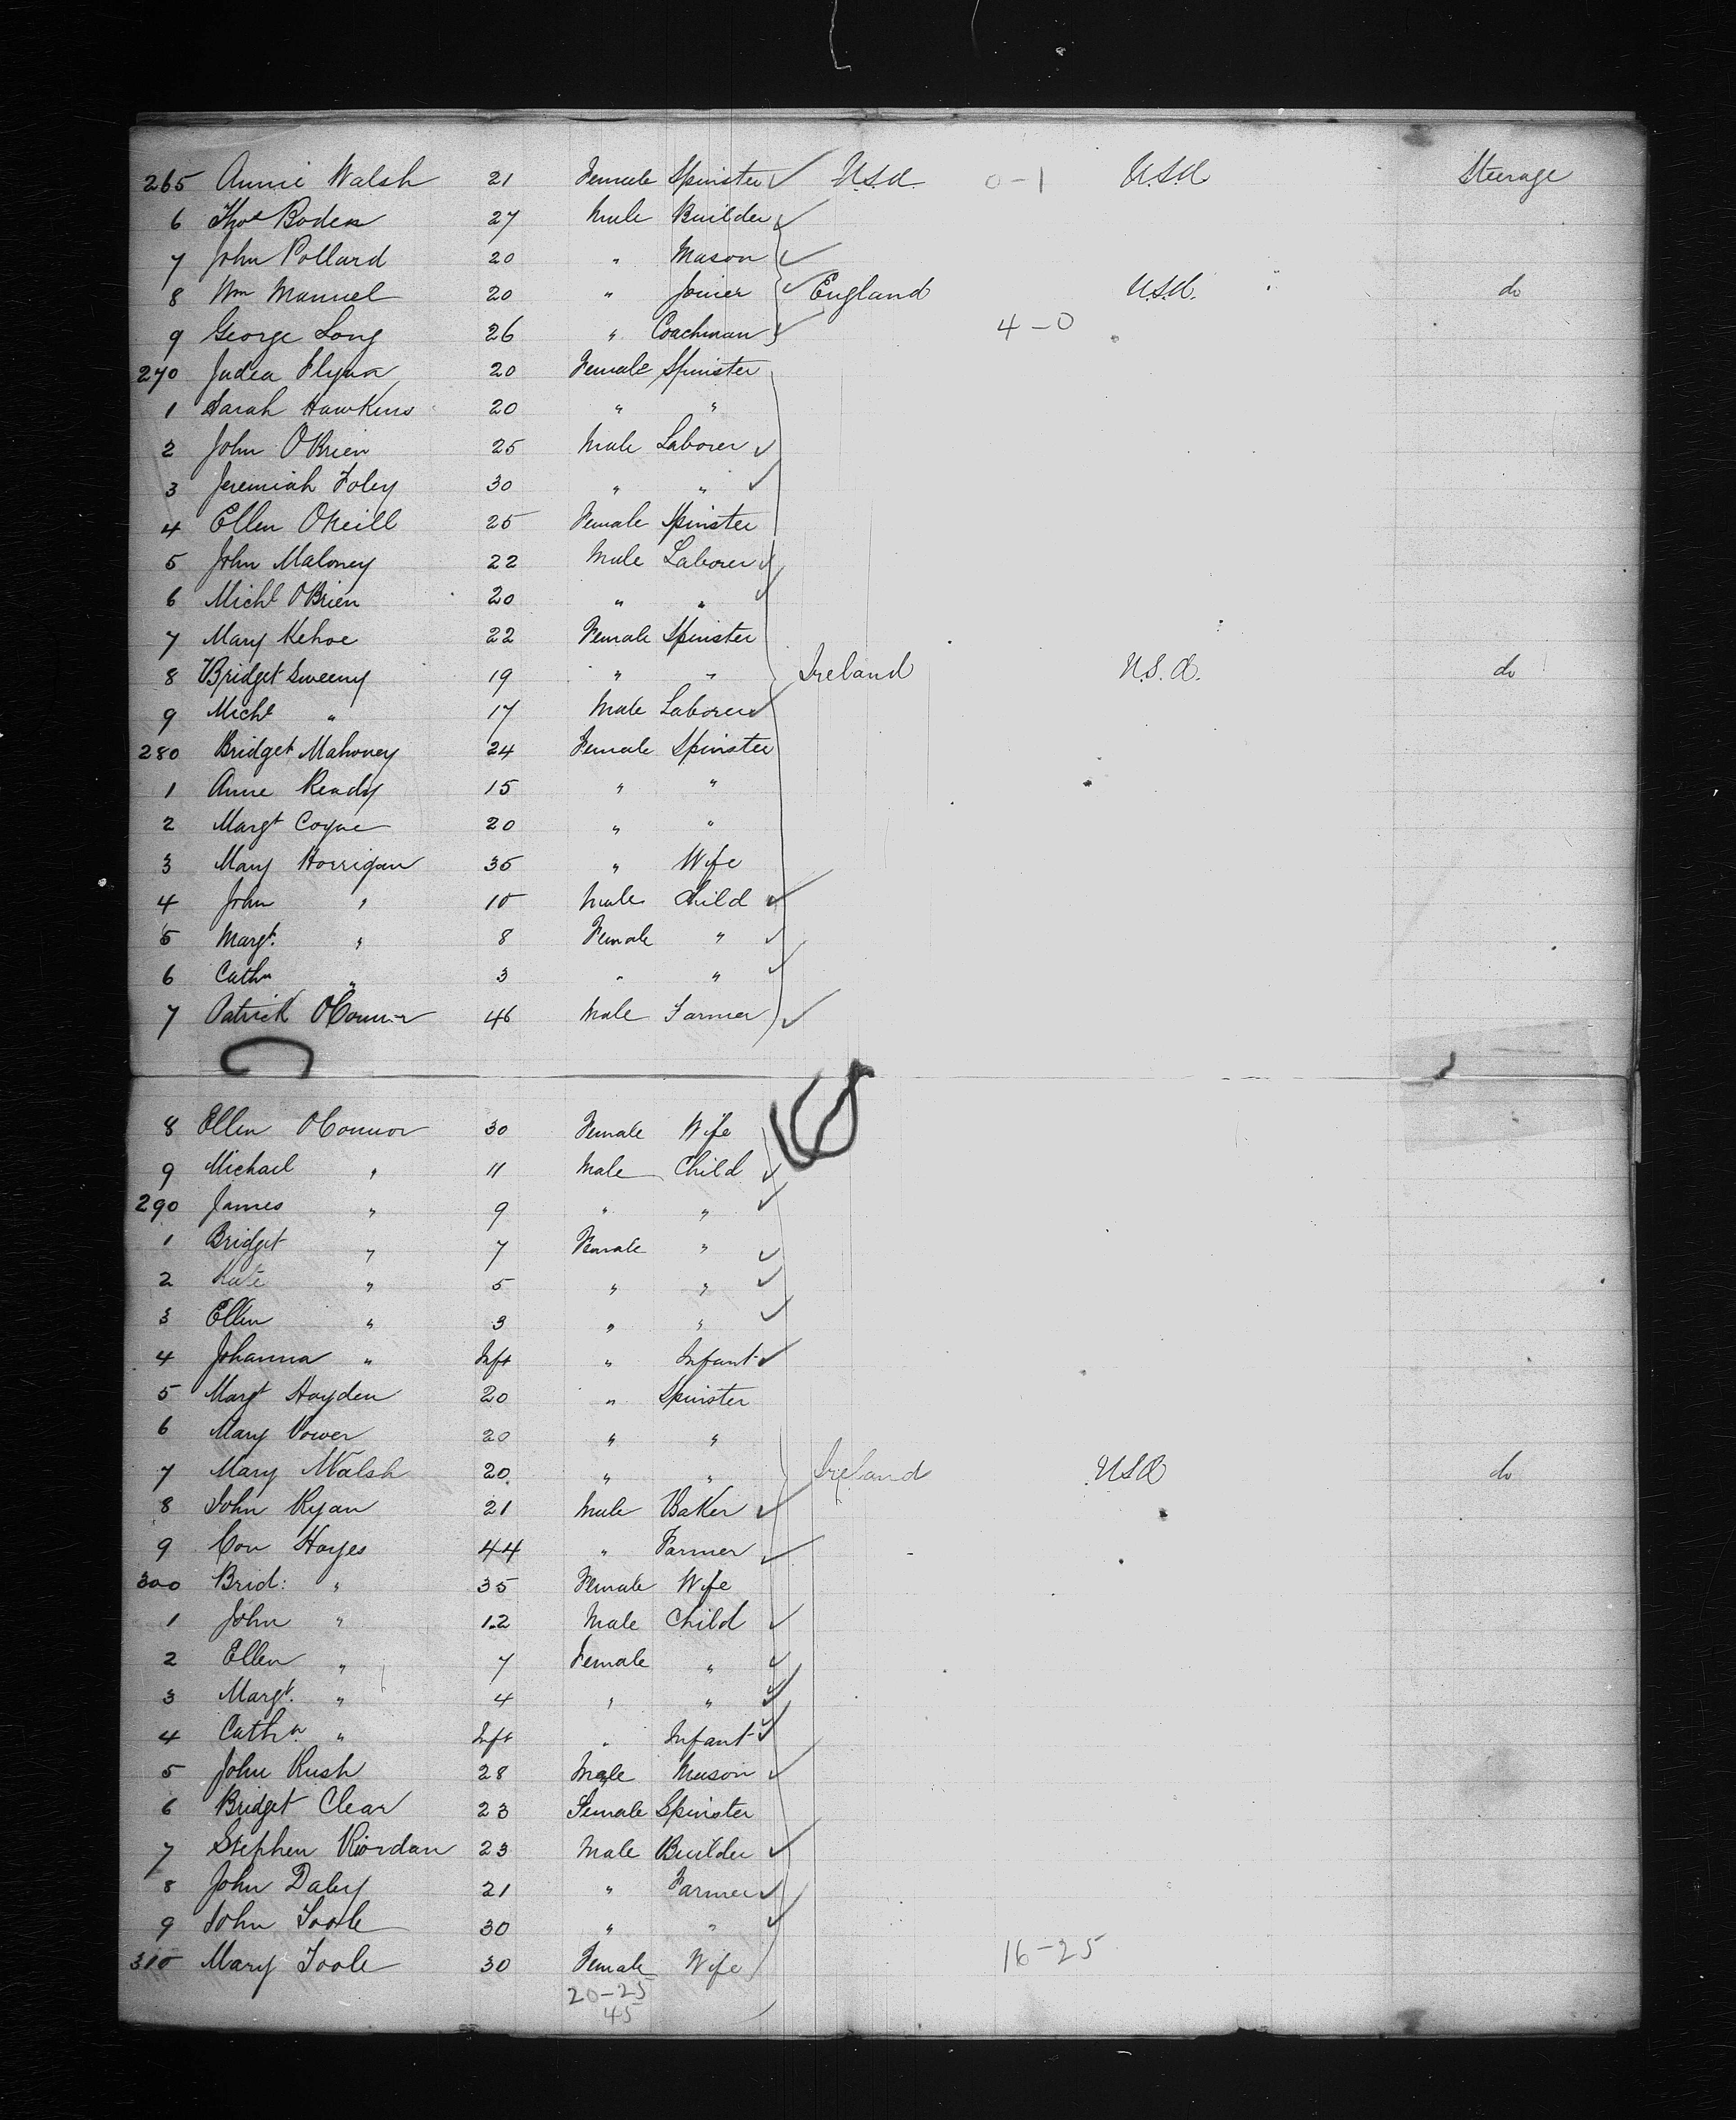 265 Annie Walsh 21 Female Spinster U.S.A. 0-1 U.S.A. Steerage
6 Thos Boden 27 Male Builder
7 John Pollard 20 " Mason
8 Wm Manuel 20 " Joiner England U.S.A. " do
9 George Long 26 " Coachman 4-0
270 Judea Flynn 20 Female Spinster
1 Sarah Hawkins 20 " "
2 John OBrien 25 Male Laborer
3 Jeremiah Foley 30 " "
4 Ellen ONeill 25 Female Spinster
5 John Maloney 22 Male Laborer
6 Michl OBrien 20 " "
7 Mary Kehoe 22 Female Spinster
8 Bridget Sweeny 19 " " Ireland U.S.A. do
9 Michl " 17 Male Laborer
280 Bridget Mahoney 24 Female Spinster
1 Anne Ready 15 " "
2 Margt Coyne 20 " "
3 Mary Horrigan 35 " Wife
4 John " 10 Male Child
5 Margt. " 8 Female "
6 Cathn " 3 " "
7 Patrick OConnor 46 Male Farmer
8 Ellen OConnor 30 Female Wife
9 Michael " 11 Male Child
290 James " 9 " "
1 Bridget " 7 Female "
2 Kate " 5 " "
3 Ellen " 3 " "
4 Johanna " Inft " Infant
5 Margt Hayden 20 " Spinster
6 Mary Power 20 " "
7 Mary Walsh 20 " " Ireland USA do
8 John Ryan 21 Male Baker
9 Con Hayes 44 " Farmer
300 Brid: " 35 Female Wife
1 John " 12 Male Child
2 Ellen " 7 Female "
3 Margt. " 4 " "
4 Cathn. " Inft " Infant
5 John Rush 28 Male Mason
6 Bridget Clear 23 Female Spinster
7 Stephen Riordan 23 Male Builder
8 John Daley 21 " Farmer
9 John Toole 30 " "
310 Mary Toole 30 Female Wife 16-25
20-25
45